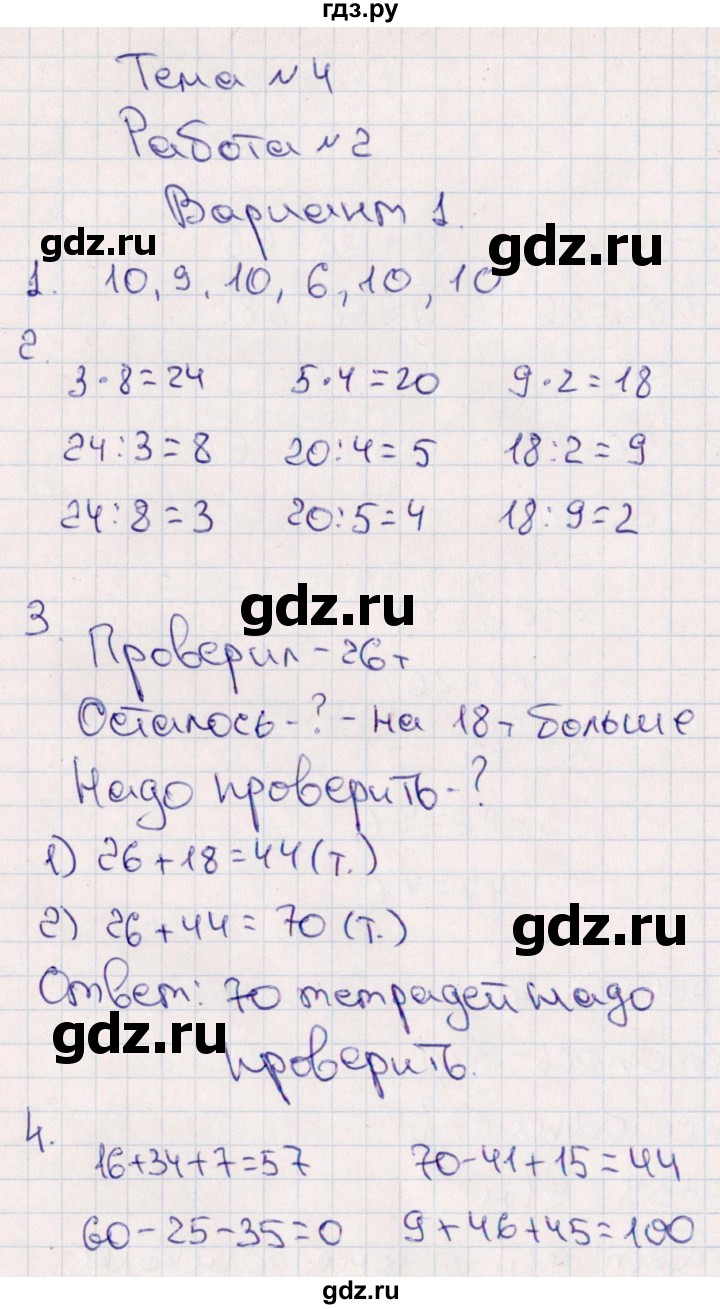 гдз.ру
Тема №4
Работа №2
Вариант 1.
gdz.ru
gdz.ru
1. 10, 9, 10, 6, 10, 10
2.
3·8=24 5·4=20 9·2=18
24:3=8 20:4=5 18:2=9
24:8=3 20:5=4 18:9=2
gdz.ru
3.
Проверил - 26т
Осталось - ? - на 18т больше
Надо проверить - ?
1) 26+18=44(т.)
gdz.ru
2) 26+44=70(т.)
Ответ: 70 тетрадей надо
gdz.ru
проверить.
4.
16+34+7=57 70-41+15=44
60-25-35=0 9+46+45=100
gdz.ru